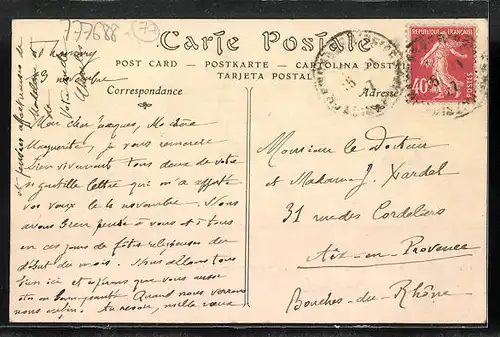 777688 (77)
Carte Postale
POST CARD — POSTKARTE — CARTOLINA POSTAL
TARJETA POSTAL
Correspondance
Adresse
RÉPUBLIQUE FRANÇAISE
40c
POSTES
novembre
Mon cher Jacques, Ma chère
Marguerite, je vous remercie
bien vivement tous deux de votre
si gentille lettre qui m'a apporté
vos vœux le 4 novembre. Nous
avons bien pensé à vous et à tous
en ces jours de fêtes religieuses du
début du mois. Nous allons tous
bien ici et espérons que vous aussi
êtes en bonne santé. Quand nous verrons
nous enfin. Au revoir, mille vœux
et pensées affectueuses de
Monsieur le Docteur
et Madame J. Xardel
31 rue des Cordeliers
Aix-en-Provence
Bouches-du-Rhône